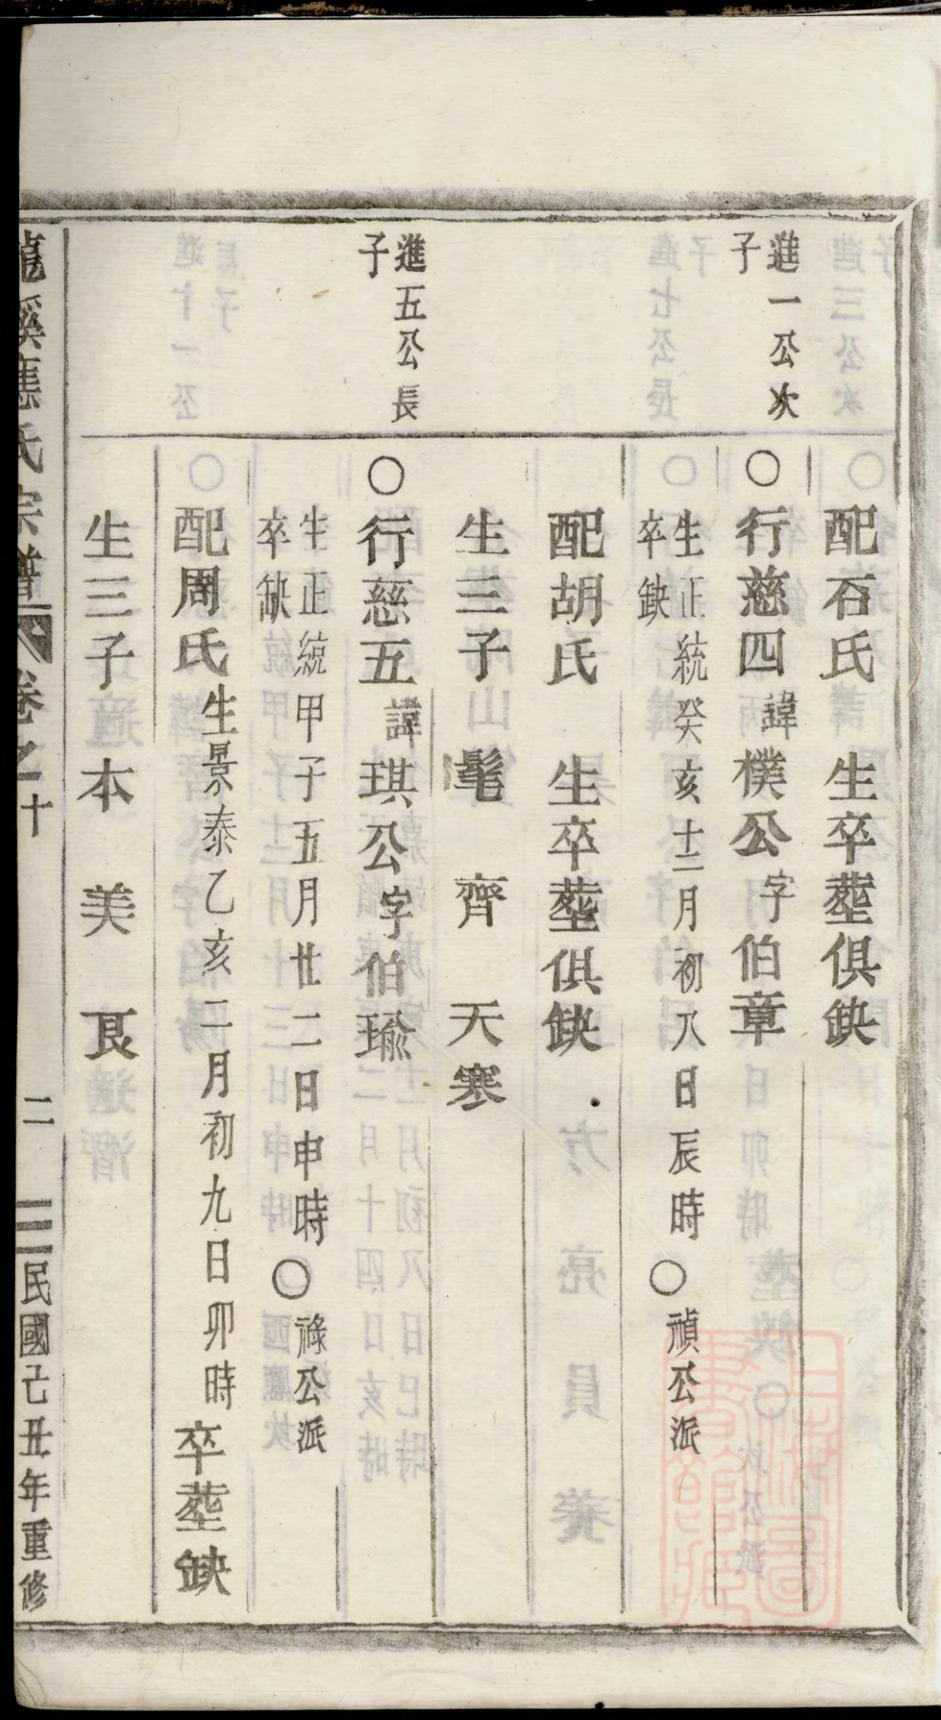 配石氏　生卒塟俱缺
進一公次
子
○行慈四諱樸公字伯章
生正統癸亥十二月初八日辰時○禎公派
卒缺
配胡氏　生卒塟俱缺
生三子　髦　齊　天寒
進五公長
子
○行慈五諱琪公字伯瑜
生正統甲子五月廿二日申時○祿公派
卒缺
配周氏生景泰乙亥二月初九日卯時卒塟缺
生三子本　美　良
龍溪應氏宗譜　卷之十　二　民國己丑年重修